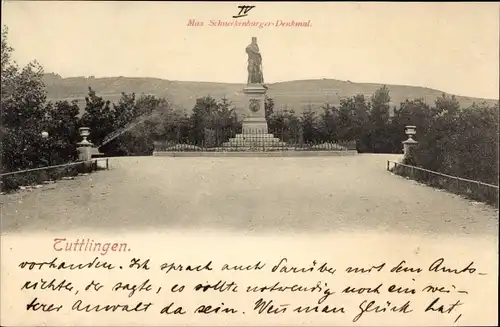 IV
Max Schneckenburger-Denkmal.
Tuttlingen.
vorhanden. Ich sprach auch darüber mit dem Amts-
richter, der sagte, es sollte noch ein wei-
terer Anwalt da sein. Wenn man Glück hat,